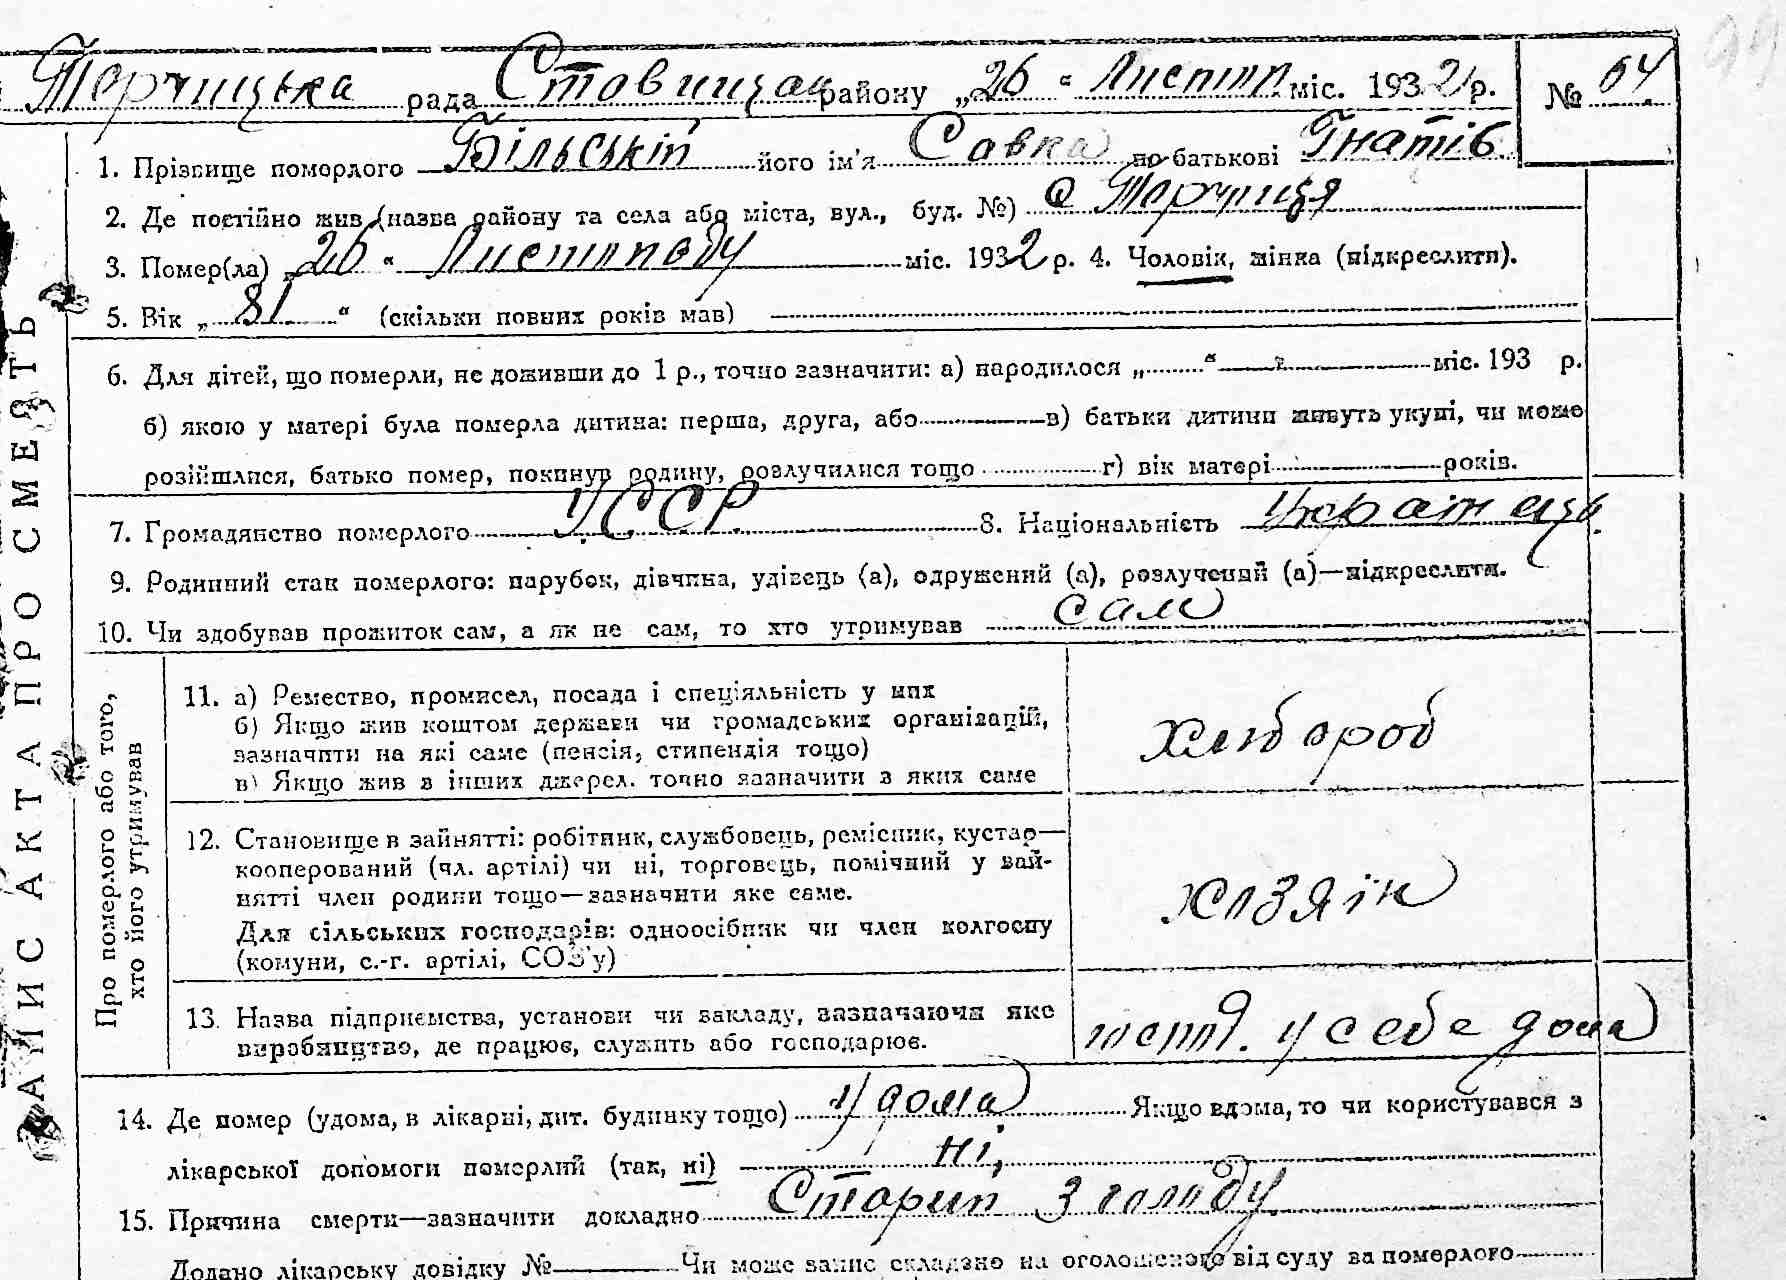 Торчицька рада Ставищан району „26“ Листоп міс. 1932 р. № 64
1. Прізвище померлого Більській його ім'я Савка по батькові Гнатів
2. Де постійно жив (назва району та села або міста, вул., буд. №) с Торчиця
3. Помер(ла) „26“ Листопаду міс. 1932 р. 4. Чоловік, жінка (підкреслити).
5. Вік „81“ (скільки повних років мав)
6. Для дітей, що померли, не доживши до 1 р., точно зазначити: а) народилося „ “ міс. 193 р.
б) якою у матері була померла дитина: перша, друга, або в) батьки дитини живуть укупі, чи може
розійшлися, батько помер, покинув родину, розлучилися тощо г) вік матері років.
7. Громадянство померлого УССР 8. Національність Українець
9. Родинний стан померлого: парубок, дівчина, удівець (а), одружений (а), розлучений (а)—підкреслити.
10. Чи здобував прожиток сам, а як не сам, то хто утримував сам
ЗАПИС АКТА ПРО СМЕРТЬ
Про померлого або того, хто його утримував
11. а) Ремество, промисел, посада і спеціяльність у них
б) Якщо жив коштом держави чи громадських організацій,
зазначити на які саме (пенсія, стипендія тощо)
в) Якщо жив з інших джерел. точно зазначити з яких саме
хлібороб
12. Становище в зайнятті: робітник, службовець, ремісник, кустар—
кооперований (чл. артілі) чи ні, торговець, помічний у зай-
нятті член родини тощо—зазначити яке саме.
Для сільських господарів: одноосібник чи член колгоспу
(комуни, с.-г. артілі, СОЗ'у)
хазяїн
13. Назва підприємства, установи чи закладу, зазначаючи яке
виробництво, де працює, служить або господарює.
госпд. у себе дома
14. Де помер (удома, в лікарні, дит. будинку тощо) У дома Якщо вдома, то чи користувався з
лікарської допомоги померлий (так, ні) ні,
15. Причина смерти—зазначити докладно Старий з голоду
Додано лікарську довідку № Чи може запис складено на оголошеного від суду за померлого